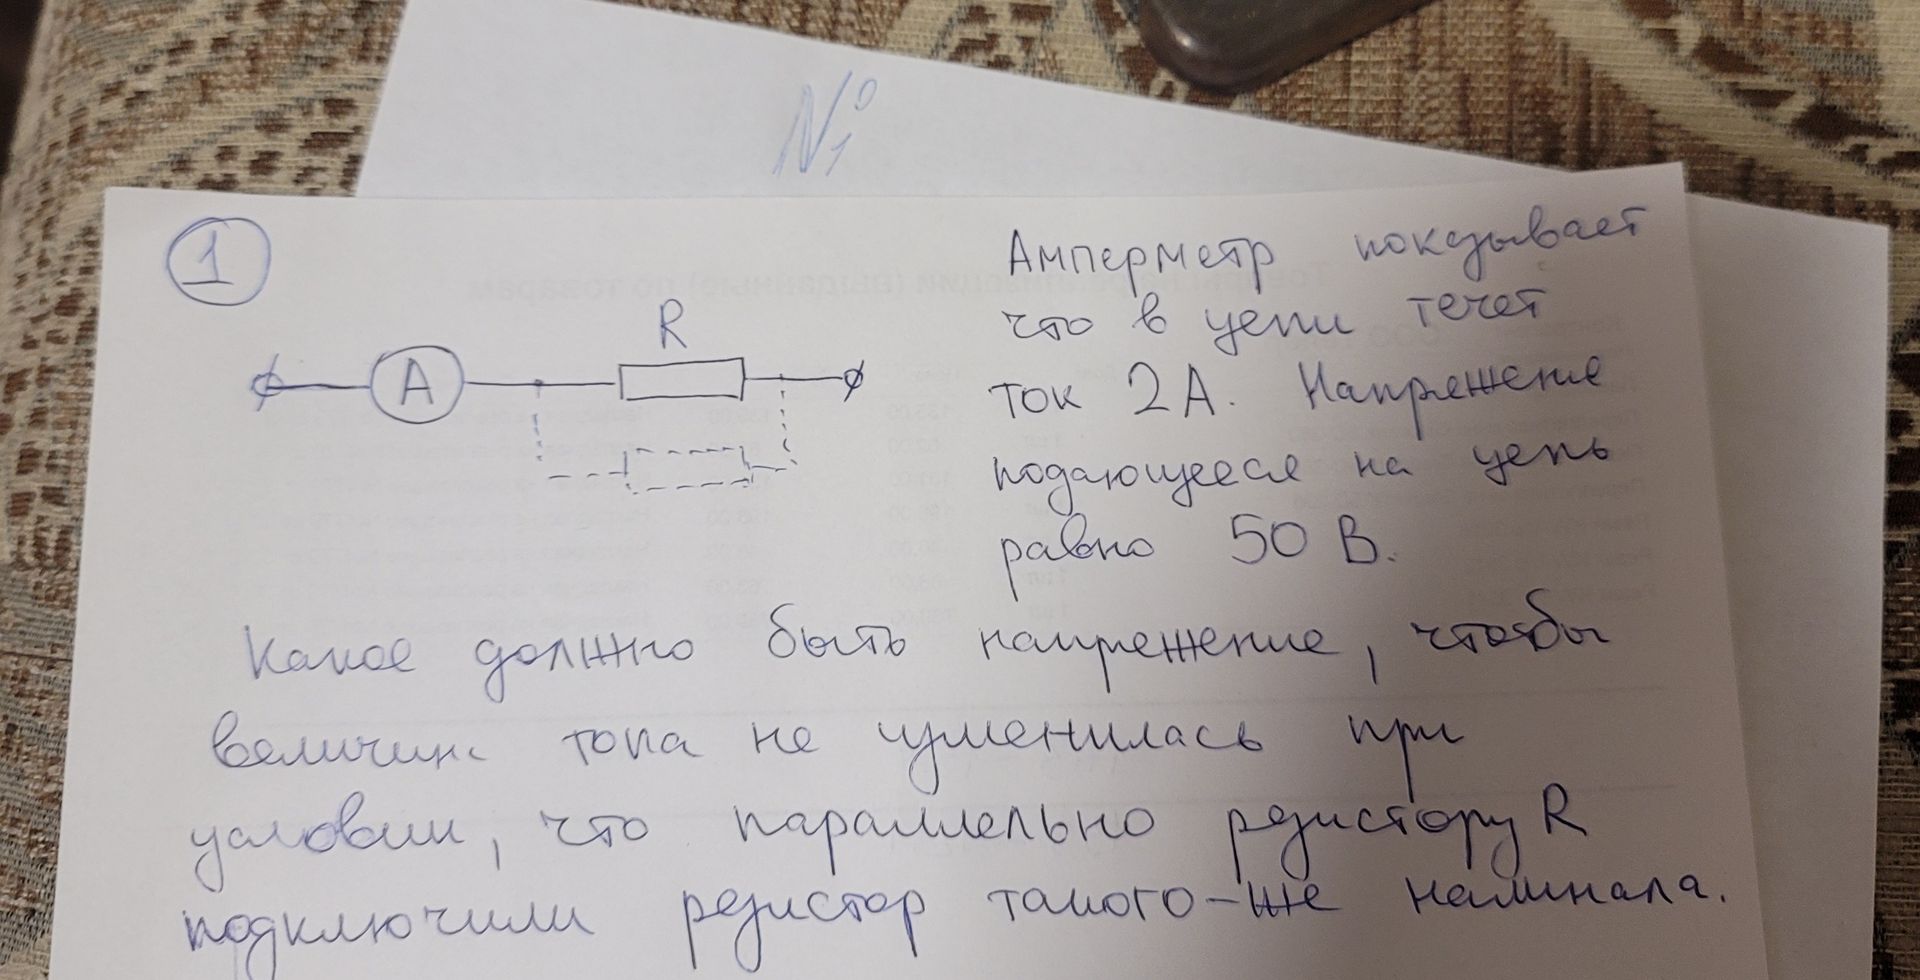 №1
1
R
A
Амперметр показывает
что в цепи течет
ток 2А. Напряжение
подающееся на цепь
равно 50 В.
Какое должно быть напряжение, чтобы
величина тока не изменилась при
условии, что параллельно резистору R
подключили резистор такого-же номинала.